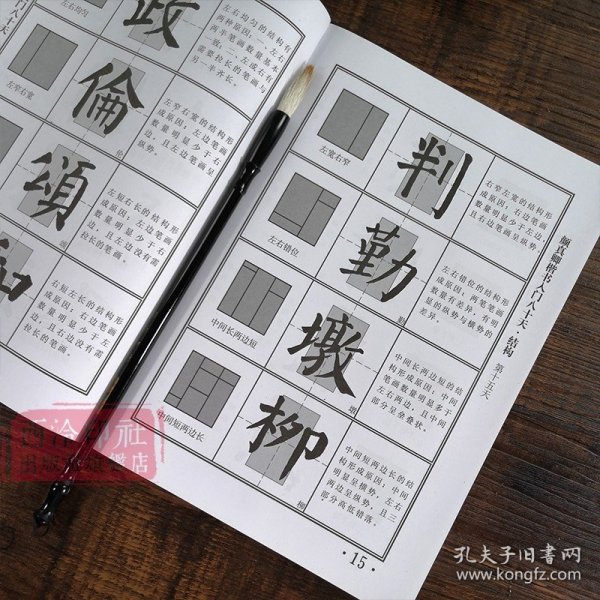 左右均匀
政
左右均匀的结构有
两种原因：一、左右
两半笔画数量基本
一致；二、左或右有
需要拉长的笔画与
另一半齐长。
左窄右宽
倫
伦
左窄右宽的结构形
成原因：左边笔画
数量明显少于右
边，且左边笔画呈
纵势。
頌
颂
左短右长的结构形
成原因：左边笔画
数量明显少于右
边，且左边没有需
拉长的笔画。
和
右短左长的结构形
成原因：右边笔画
数量明显少于左
边，且右边没有需
拉长的笔画。
左宽右窄
判
右窄左宽的结构形
成原因：右边笔画
数量明显少于左边，
且右边笔画呈纵势。
左右错位
勤
勤
左右错位的结构形
成原因：两边笔画
数量有差异，有明
显的纵势与横势的
差异。
中间长两边短
墩
墩
中间长两边短的结
构形成原因：中间
笔画数量明显多于
左右两边，且中间
部分呈垒叠状。
中间短两边长
柳
柳
中间短两边长的结
构形成原因：中间
明显呈横势，左右
两边呈纵势，且三
部分高低错落。
颜真卿楷书入门八十天·结构
第十五天
·15·
西泠印社
出版社旗舰店
孔夫子旧书网
www.kongfz.com